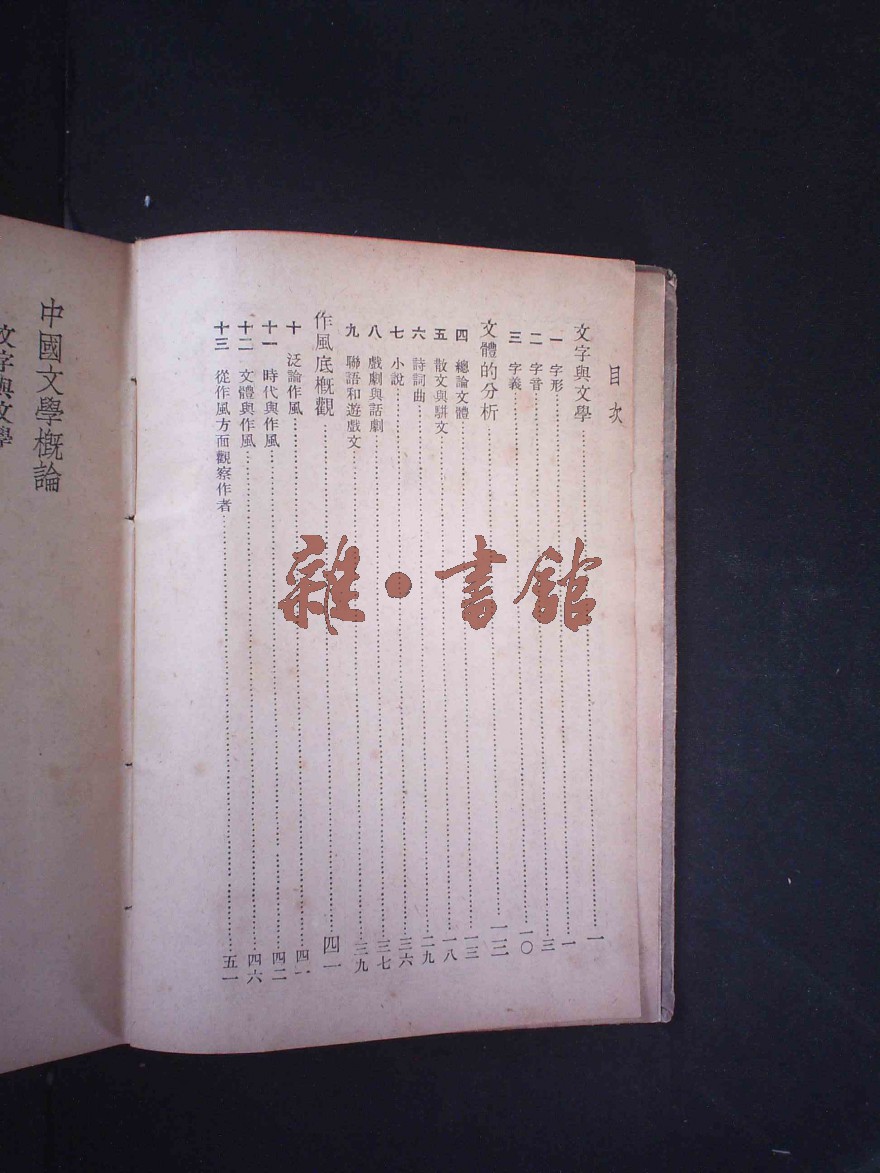 目次
文字與文學……一
一 字形……一
二 字音……三
三 字義……一〇
文體的分析……一三
四 總論文體……一三
五 散文與駢文……一八
六 詩詞曲……二九
七 小說……三六
八 戲劇與話劇……三七
九 聯語和遊戲文……三九
作風底概觀……四一
十 泛論作風……四一
十一 時代與作風……四二
十二 文體與作風……四六
十三 從作風方面觀察作者……五一
中國文學概論
文字與文學
雜·書館